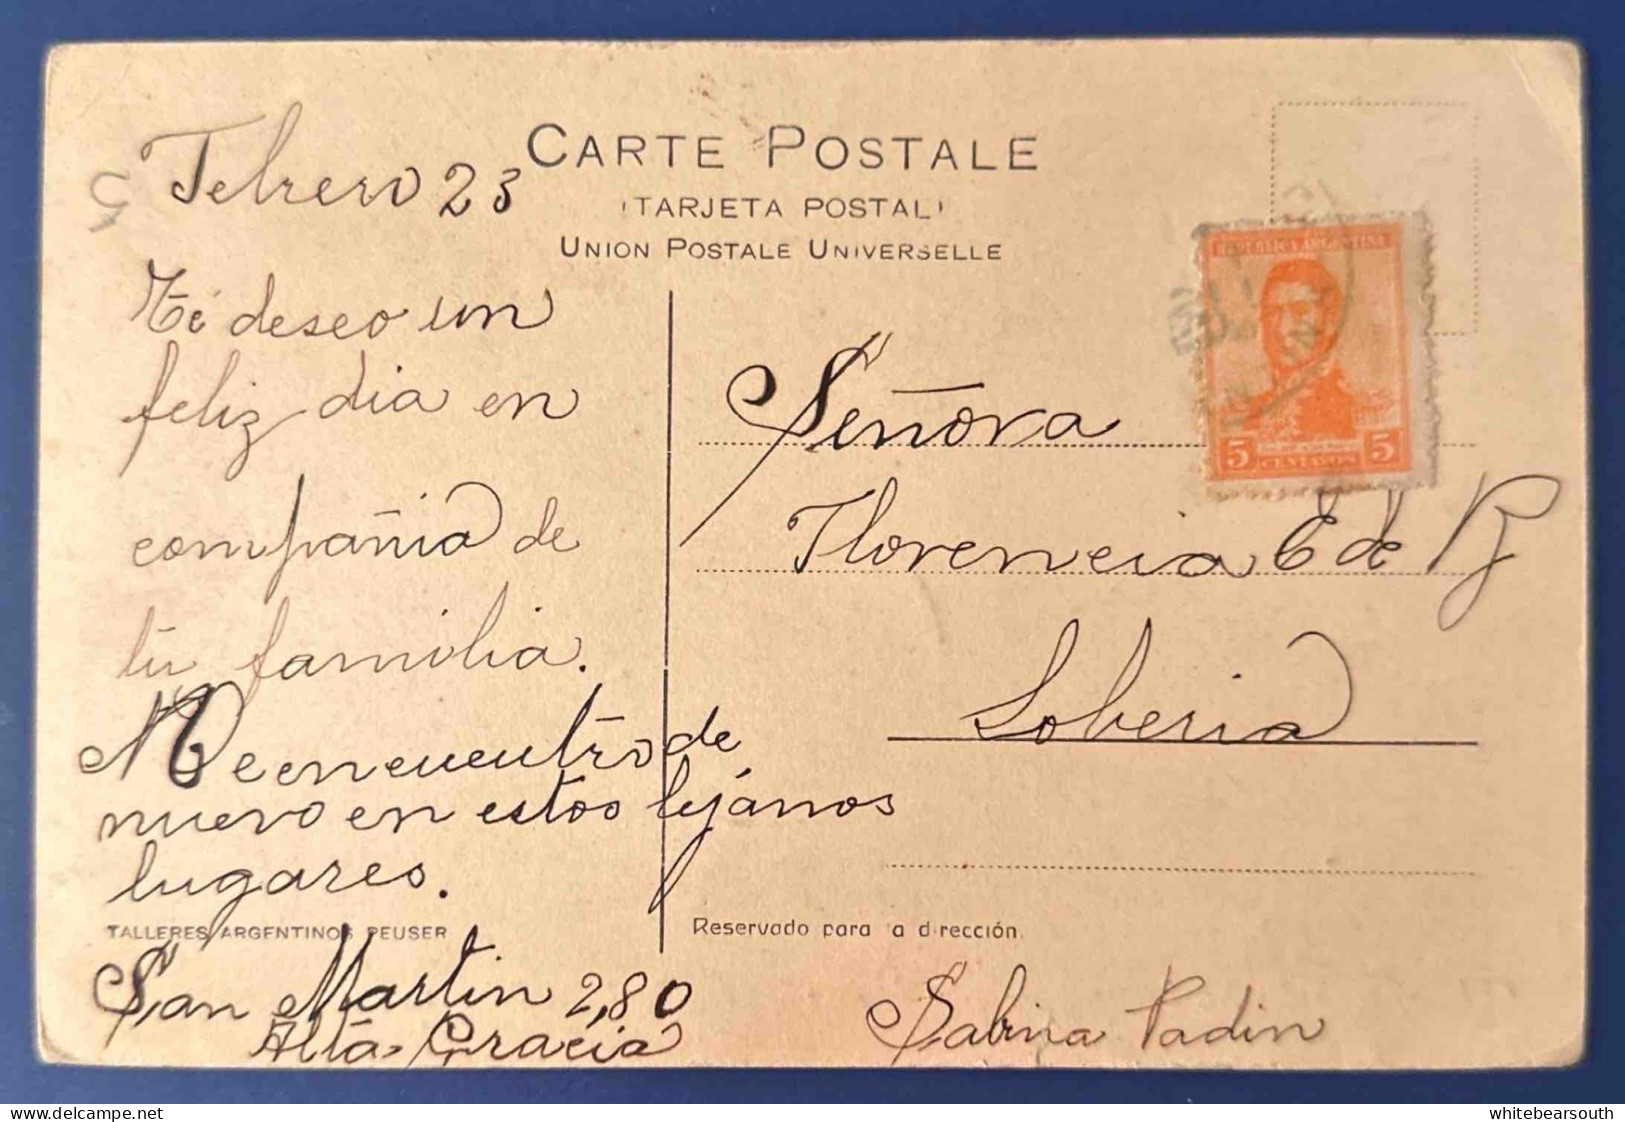 CARTE POSTALE
(TARJETA POSTAL)
UNION POSTALE UNIVERSELLE
Febrero 23
Té deseo un
feliz dia en
compañia de
tu familia.
Me encuentro de
nuevo en estos lejanos
lugares.
TALLERES ARGENTINOS PEUSER
San Martin 2,80
Alta Gracia
REPUBLICA ARGENTINA
5 CENTAVOS 5
Señora
Florencia E de R
Loberia
Reservado para la dirección.
Sabina Padin
whitebearsouth
delcampe.net